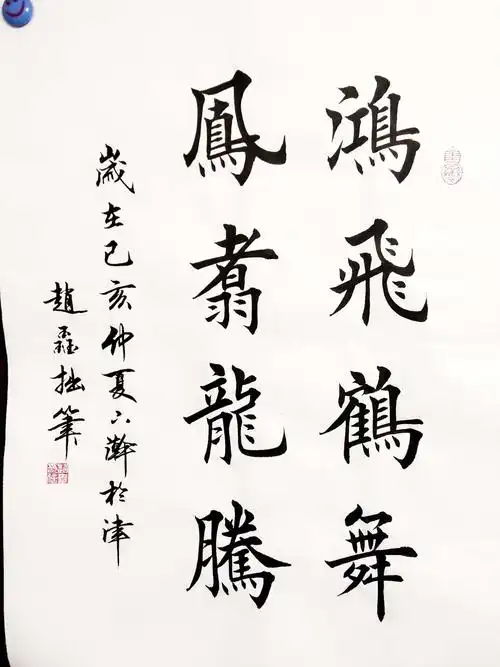 鴻飛鶴舞
鳳翥龍騰
歲在己亥仲夏下澣於津
趙拙筆